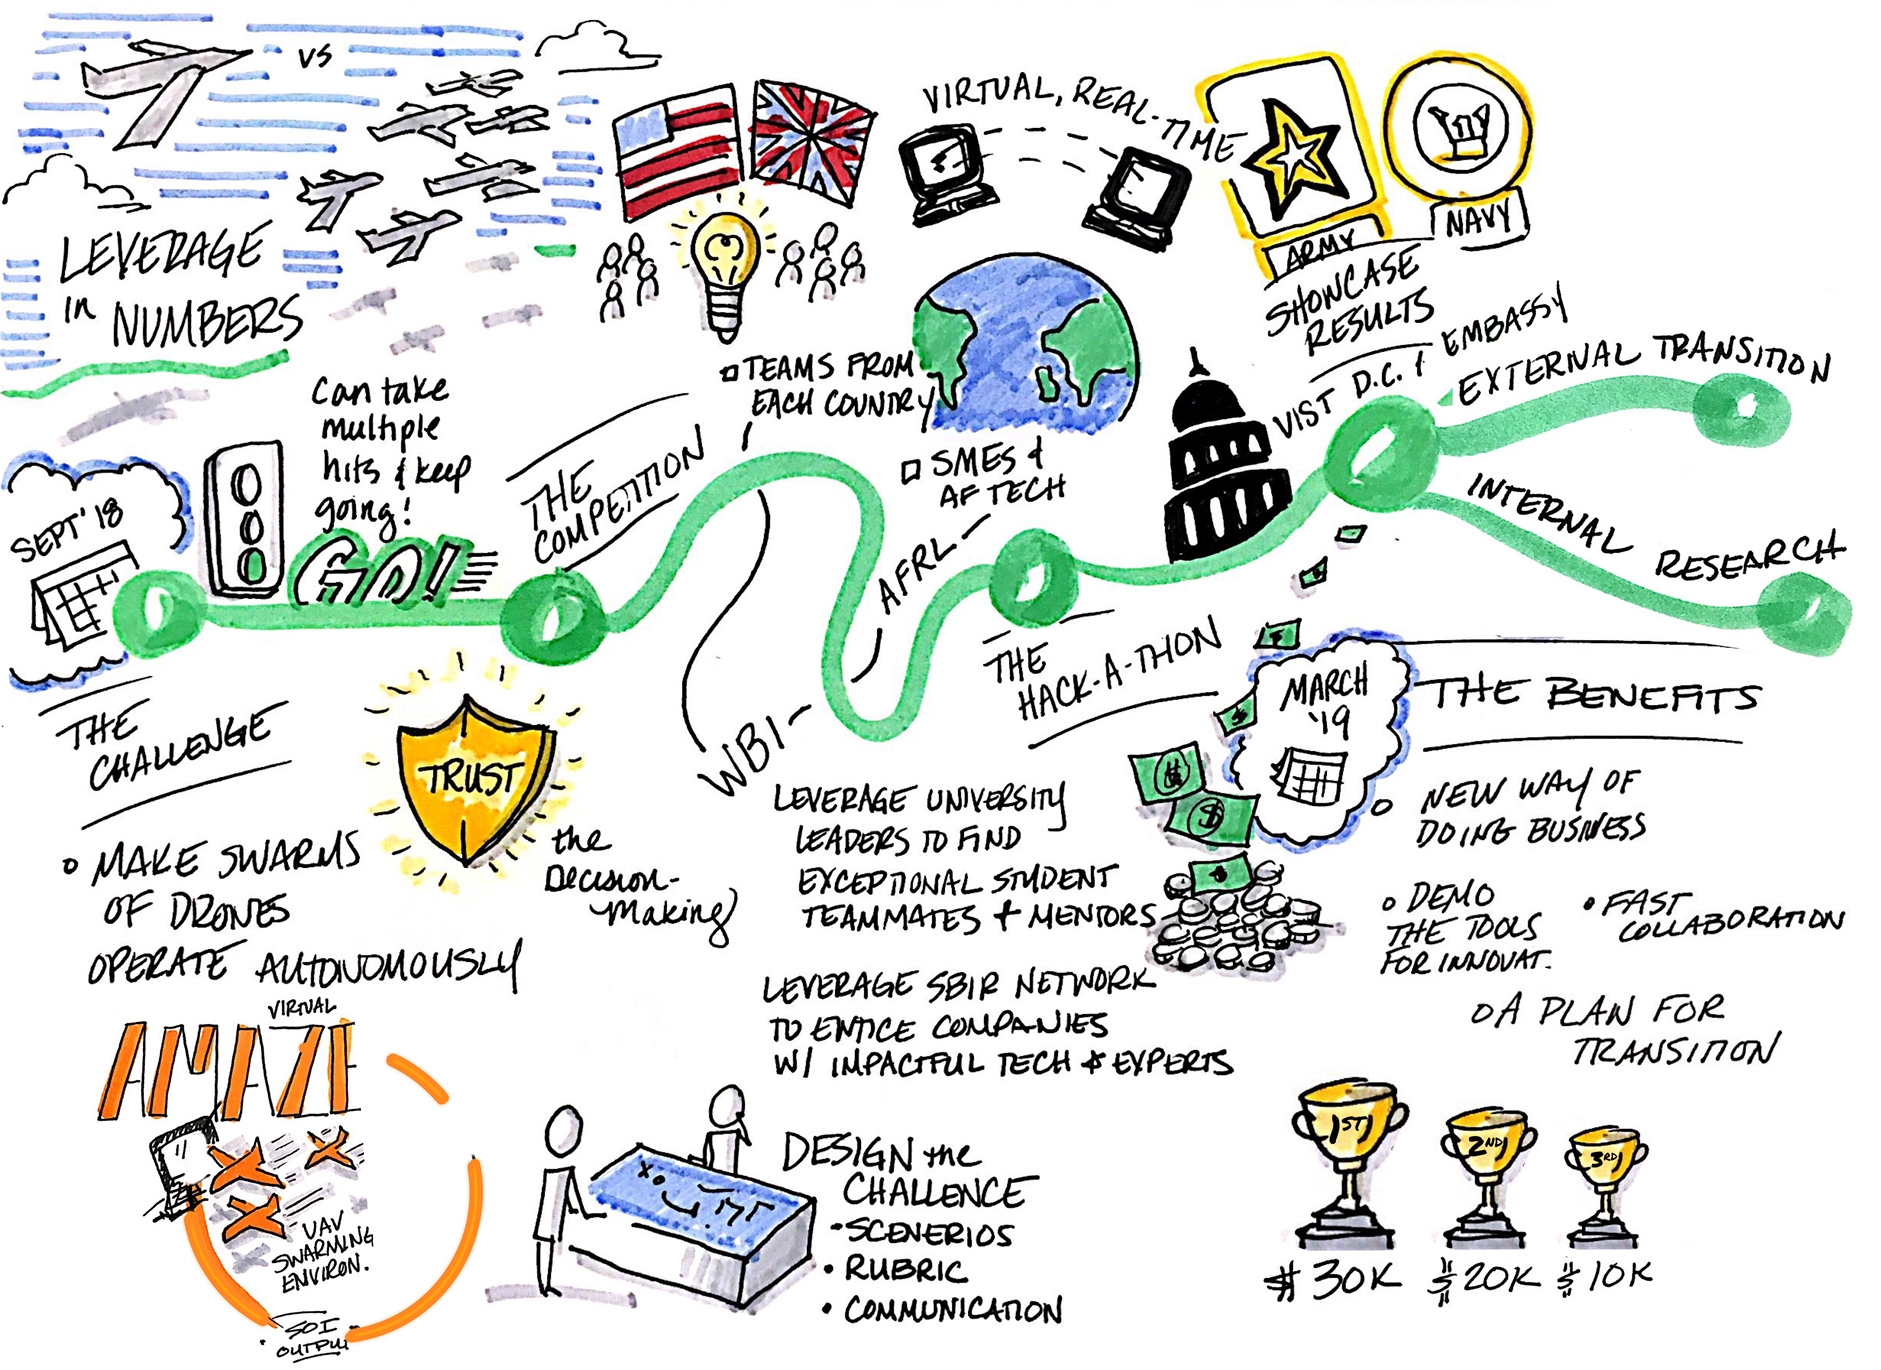 VS
LEVERAGE
in NUMBERS
Can take
multiple
hits & keep
going!
SEPT '18
GO!
THE
CHALLENGE
• MAKE SWARMS
OF DRONES
OPERATE AUTONOMOUSLY
TRUST
the
Decision-
Making
VIRTUAL
AMAZE
UAV
SWARMING
ENVIRON.
SOI
OUTPUT
THE
COMPETITION
TEAMS FROM
EACH COUNTRY
VIRTUAL, REAL-TIME
SMES &
AF TECH
AFRL-
WBI-
LEVERAGE UNIVERSITY
LEADERS TO FIND
EXCEPTIONAL STUDENT
TEAMMATES + MENTORS
LEVERAGE SBIR NETWORK
TO ENTICE COMPANIES
W/ IMPACTFUL TECH & EXPERTS
DESIGN the
CHALLENCE
• SCENERIOS
• RUBRIC
• COMMUNICATION
THE
HACK-A-THON
ARMY
NAVY
SHOWCASE
RESULTS
VIST D.C. & EMBASSY
EXTERNAL TRANSITION
INTERNAL RESEARCH
MARCH
'19
$
$
THE BENEFITS
• NEW WAY OF
DOING BUSINESS
• DEMO
THE TOOLS
FOR INNOVAT.
• FAST
COLLABORATION
• A PLAN FOR
TRANSITION
1ST
2ND
3RD
$30K
$20K
$10K